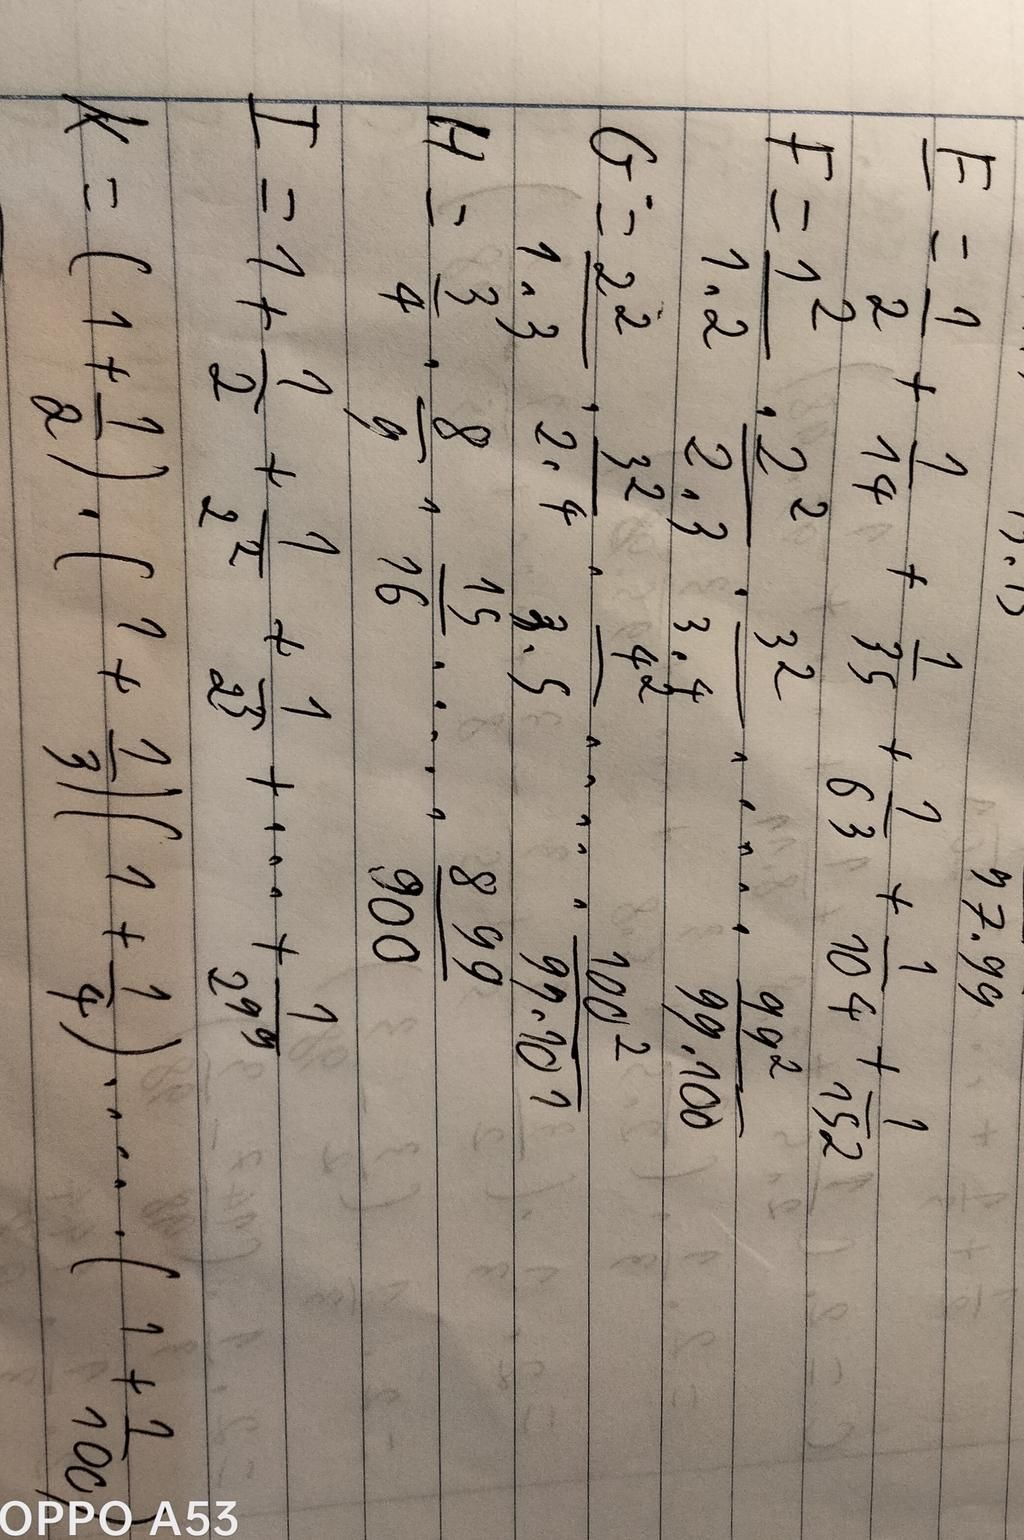 97.99
E = 1/2 + 1/14 + 1/35 + 1/63 + 1/104 + 1/152
F = 1²/1.2 . 2²/2.3 . 3²/3.4 ..... 99²/99.100
G = 2²/1.3 . 3²/2.4 . 4²/3.5 ..... 100²/99.101
H = 3/4 . 8/9 . 15/16 ..... 899/900
I = 1 + 1/2 + 1/2² + 1/2³ + .... + 1/2⁹⁹
K = (1 + 1/2) . (1 + 1/3)(1 + 1/4) ..... (1 + 1/100)
OPPO A53